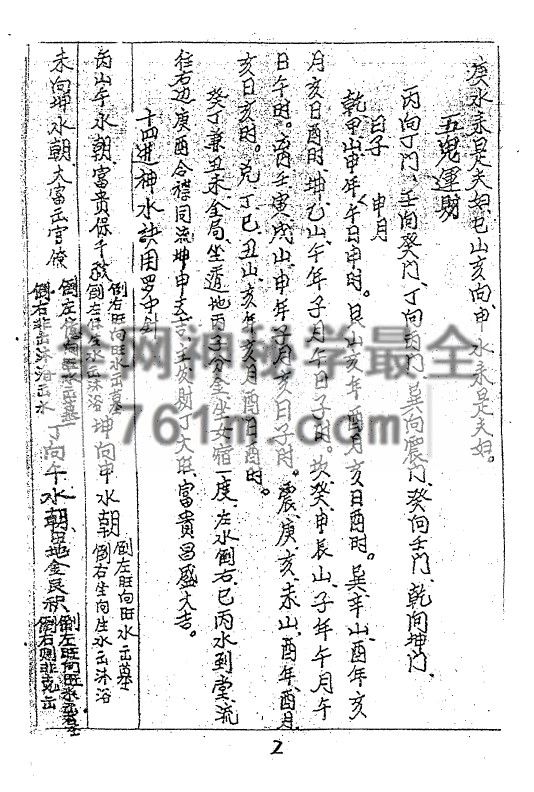 癸水来是夫妇、巳山亥向、申水来是夫妇。
五鬼運财
丙向丁门、壬向癸门、丁向丙门、巽向震门、癸向壬门、乾向坤门、
日子 申月
乾、甲山申年午日申时。艮山亥年酉月亥日酉时。巽辛山酉年亥
月亥日酉时、坤乙山午年子月午日子时。坎癸、申辰山、子年午月午
日午时。离壬寅戌山申年子月亥日子时、震、庚、亥、未山、酉年酉月
亥日亥时。兑、丁巳、丑山、亥年亥月酉日酉时。
癸丁兼丑未全局、坐遁地丙子分金、坐女宿一度、左水倒右巳丙水到堂流
往右边庚酉合襟同流坤申去吉、主发财丁大旺、富貴昌盛大吉。
十四进神水訣用罗中針
丙山午水朝、富貴保千秋 倒右旺向旺水出墓 倒左 生水出沐浴 坤向申水朝 倒左旺向旺水出墓 倒右生向生水出沐浴
未向坤水朝、大富出官僚 倒左 旺水出墓 倒右非出沐浴出水 丁向午水朝、 金艮积 倒左旺向旺水出墓 倒右则非克出
2
全网神秘学最全
761m.com